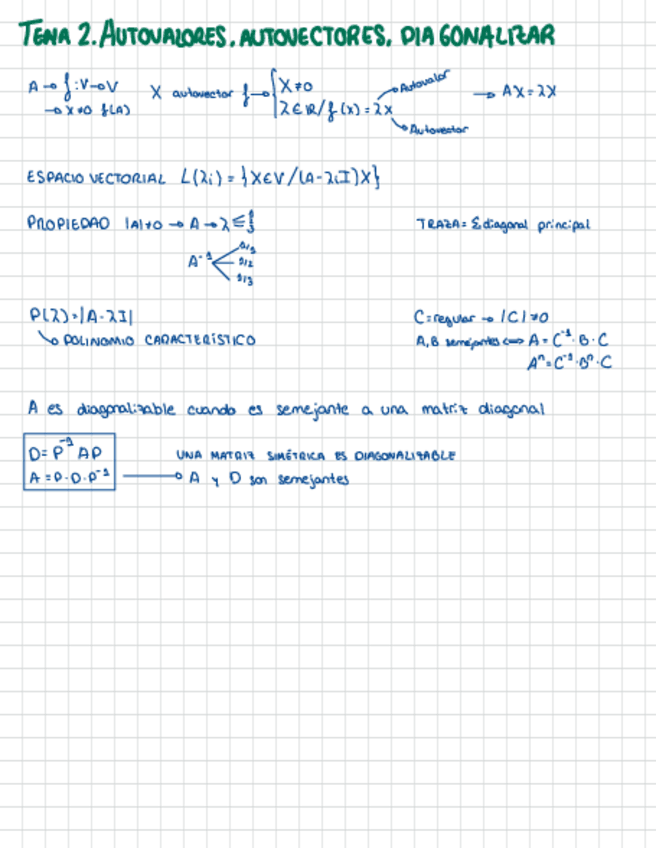 TEMA 2. AUTOVALORES, AUTOVECTORES, DIAGONALIZAR
A → f: V→V
→ X≠0 f(A)
X autovector f → { X≠0
λ∈ℝ / f(x) = λx
Autovalor
Autovector
→ AX = λX
ESPACIO VECTORIAL L(λi) = {X∈V / (A-λiI)X}
PROPIEDAD |A|≠0 → A → λ
TRAZA = Σ diagonal principal
A⁻¹
1/1
1/2
1/3
P(λ) = |A-λI|
↳ POLINOMIO CARACTERÍSTICO
C = regular → |C| ≠ 0
A, B semejantes ⟺ A = C⁻¹·B·C
Aⁿ = C⁻¹·Bⁿ·C
A es diagonalizable cuando es semejante a una matriz diagonal
D = P⁻¹ AP
A = P·D·P⁻¹
UNA MATRIZ SIMÉTRICA ES DIAGONALIZABLE
→ A y D son semejantes